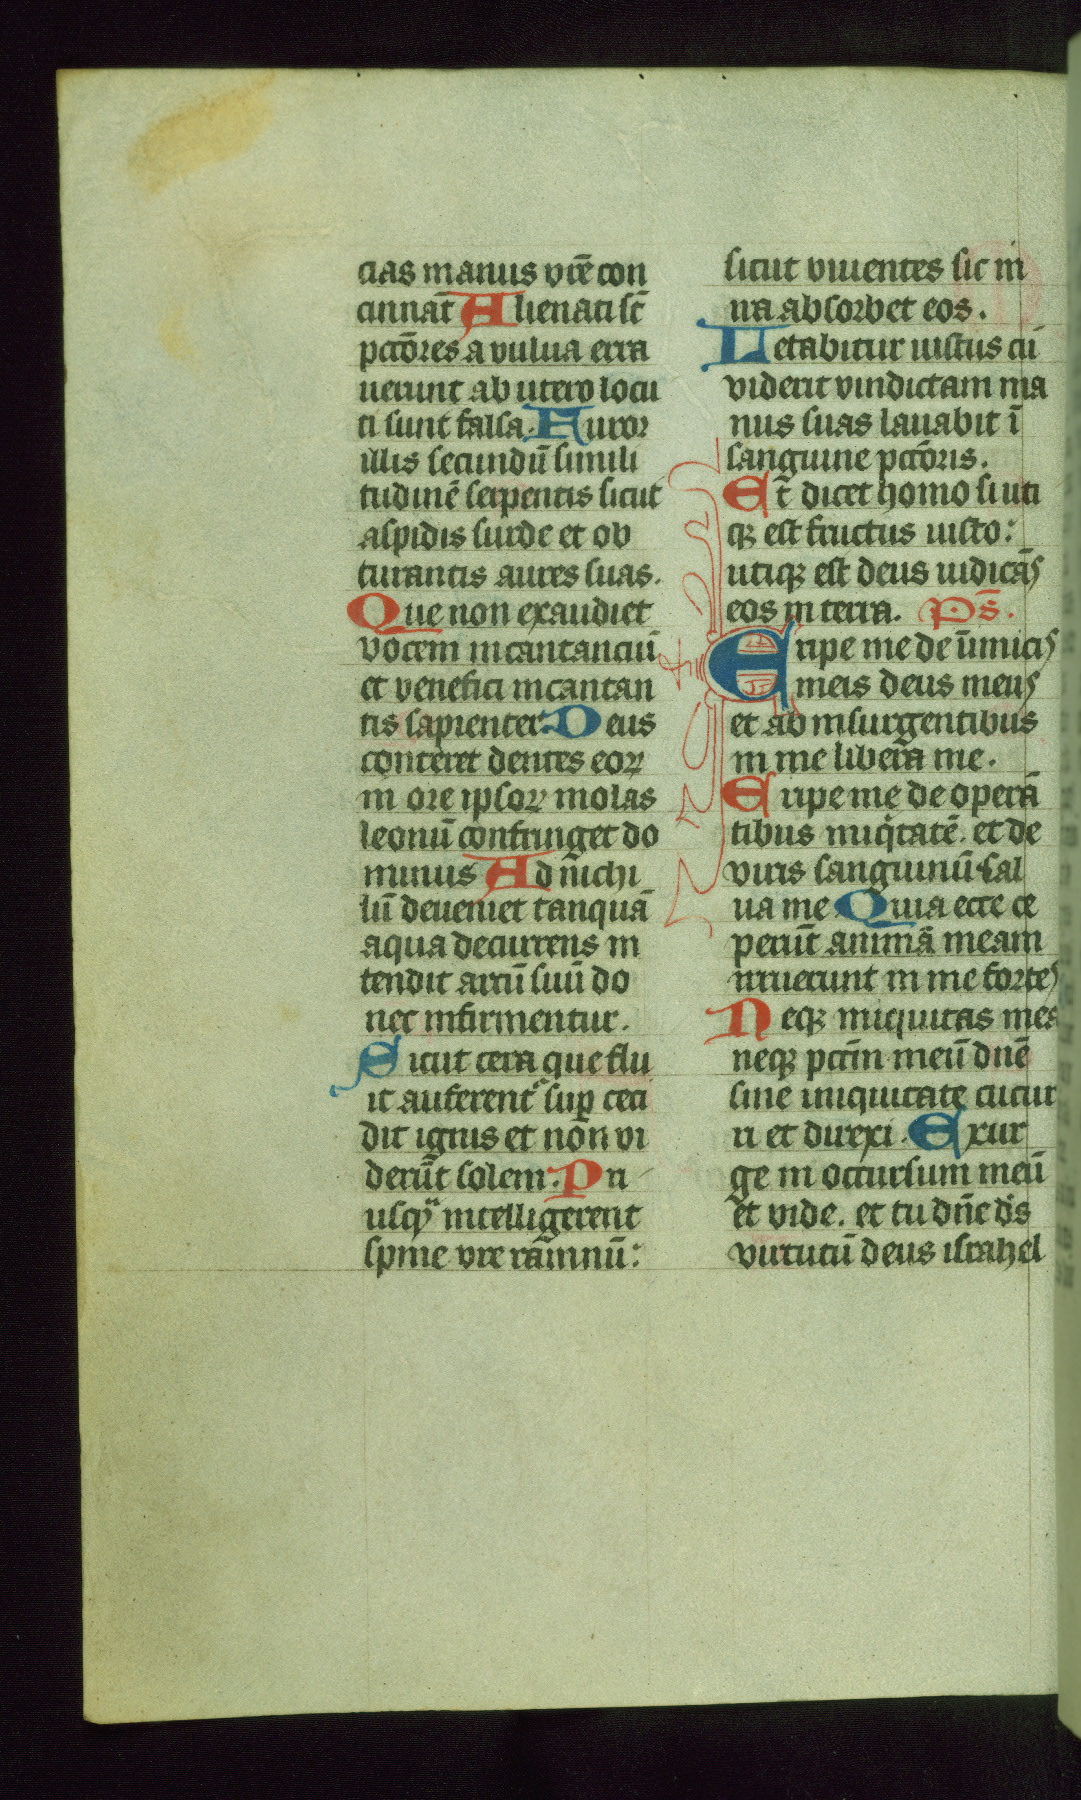 cias manus vr̄e con
cinnāt Alienati st̄
pctōres a vulua erra
uerunt ab utero locu
ti sunt falsa. Furor
illis secundū simili
tudinē serpentis sicut
aspidis surde et ob
turantis aures suas.
Que non exaudiet
vocem incantanciū
et venefici incantan
tis sapienter. Deus
conteret dentes eoꝝ
in ore ipsoꝝ molas
leonū confringet do
minus Ad nichi
lū deueniet tanquā
aqua decurrens in
tendit arcū suū do
nec infirmentur.
Sicut cera que flu
it auferent᷑ suꝑ ceci
dit ignis et non vi
derūt solem. Pri
usqᷓ intelligerent
spine vr̄e rāmnū:
sicut viuentes sic in
ira absorbet eos.
Letabitur iustus cū
viderit vindictam ma
nus suas lauabit ī
sanguine pctōris.
Et̄ dicet homo si uti
qꝫ est fructus iusto:
utiqꝫ est deus iudicās
eos in terra. Ps̄.
Eripe me de inimicis
meis deus meus
et ab insurgentibus
in me libera me.
Eripe me de operā
tibus iniqͥtatē. et de
viris sanguinū sal
ua me Quia ecce ce
perūt animā meam
irruerunt in me fortes
Neqꝫ iniquitas mea
neqꝫ pctm̄ meū dn̄e
sine iniquitate cucur
ri et direxi. Exur
ge in occursum meū
et vide. et tu dn̄e ds̄
virtutū deus israhel